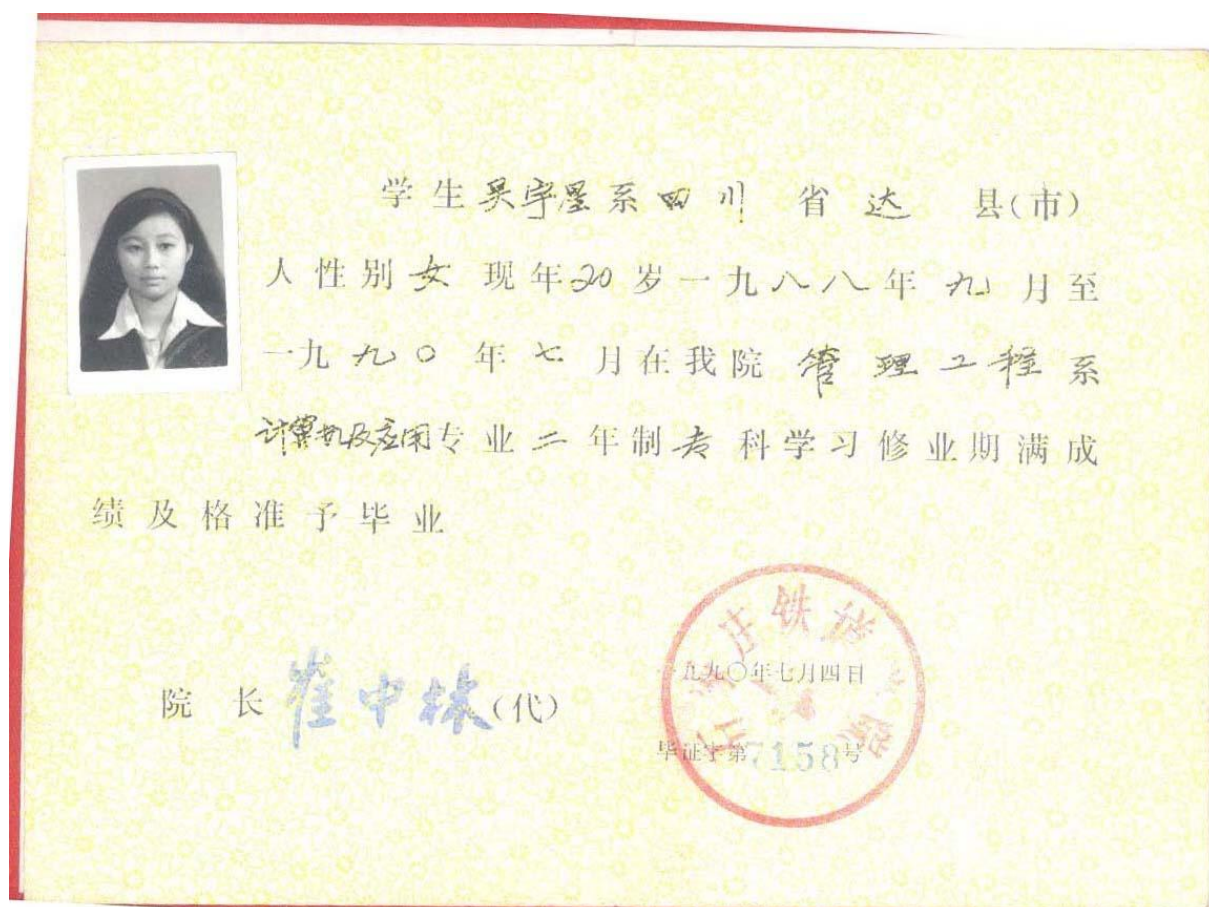 学生吴宇星系四川省达县(市)
人性别女现年20岁一九八八年九月至
一九九〇年七月在我院管理工程系
计算机及应用专业二年制专科学习修业期满成
绩及格准予毕业
院长崔中林(代)
一九九〇年七月四日
毕证字第7158号